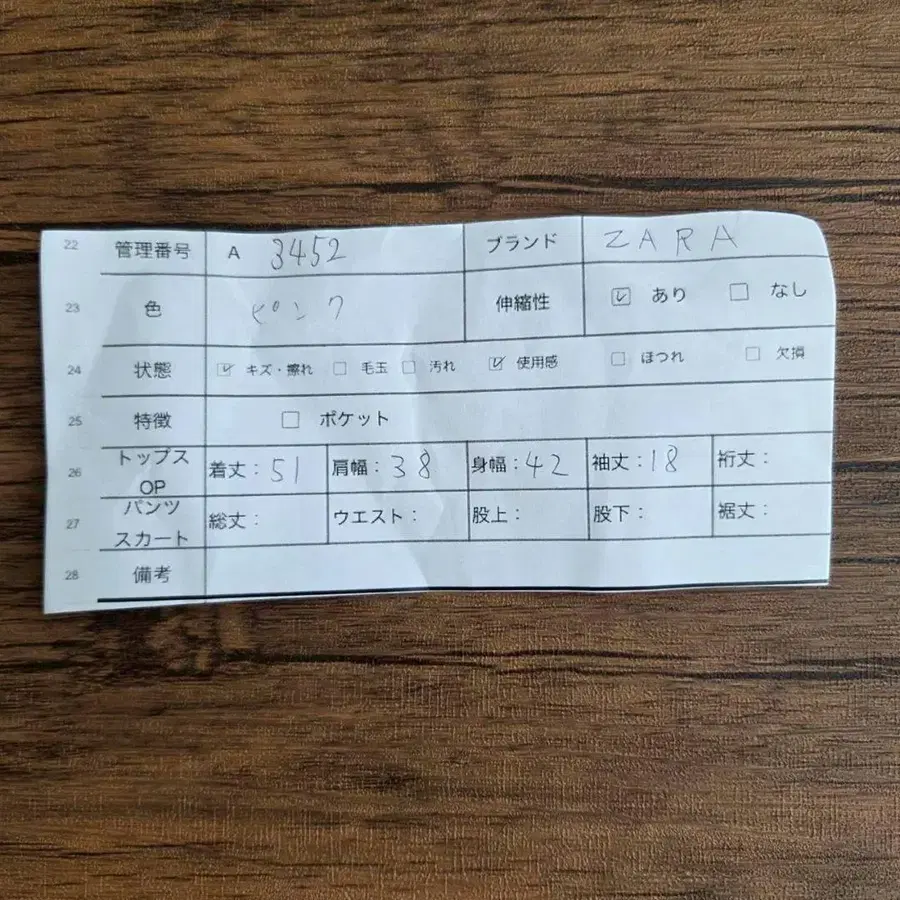 22 管理番号 A 3452 ブランド ZARA
23 色 ピンク 伸縮性 ☑ あり ☐ なし
24 状態 ☑ キズ・擦れ ☐ 毛玉 ☐ 汚れ ☑ 使用感 ☐ ほつれ ☐ 欠損
25 特徴 ☐ ポケット
26 トップス OP 着丈：51 肩幅：38 身幅：42 袖丈：18 裄丈：
27 パンツ スカート 総丈： ウエスト： 股上： 股下： 裾丈：
28 備考